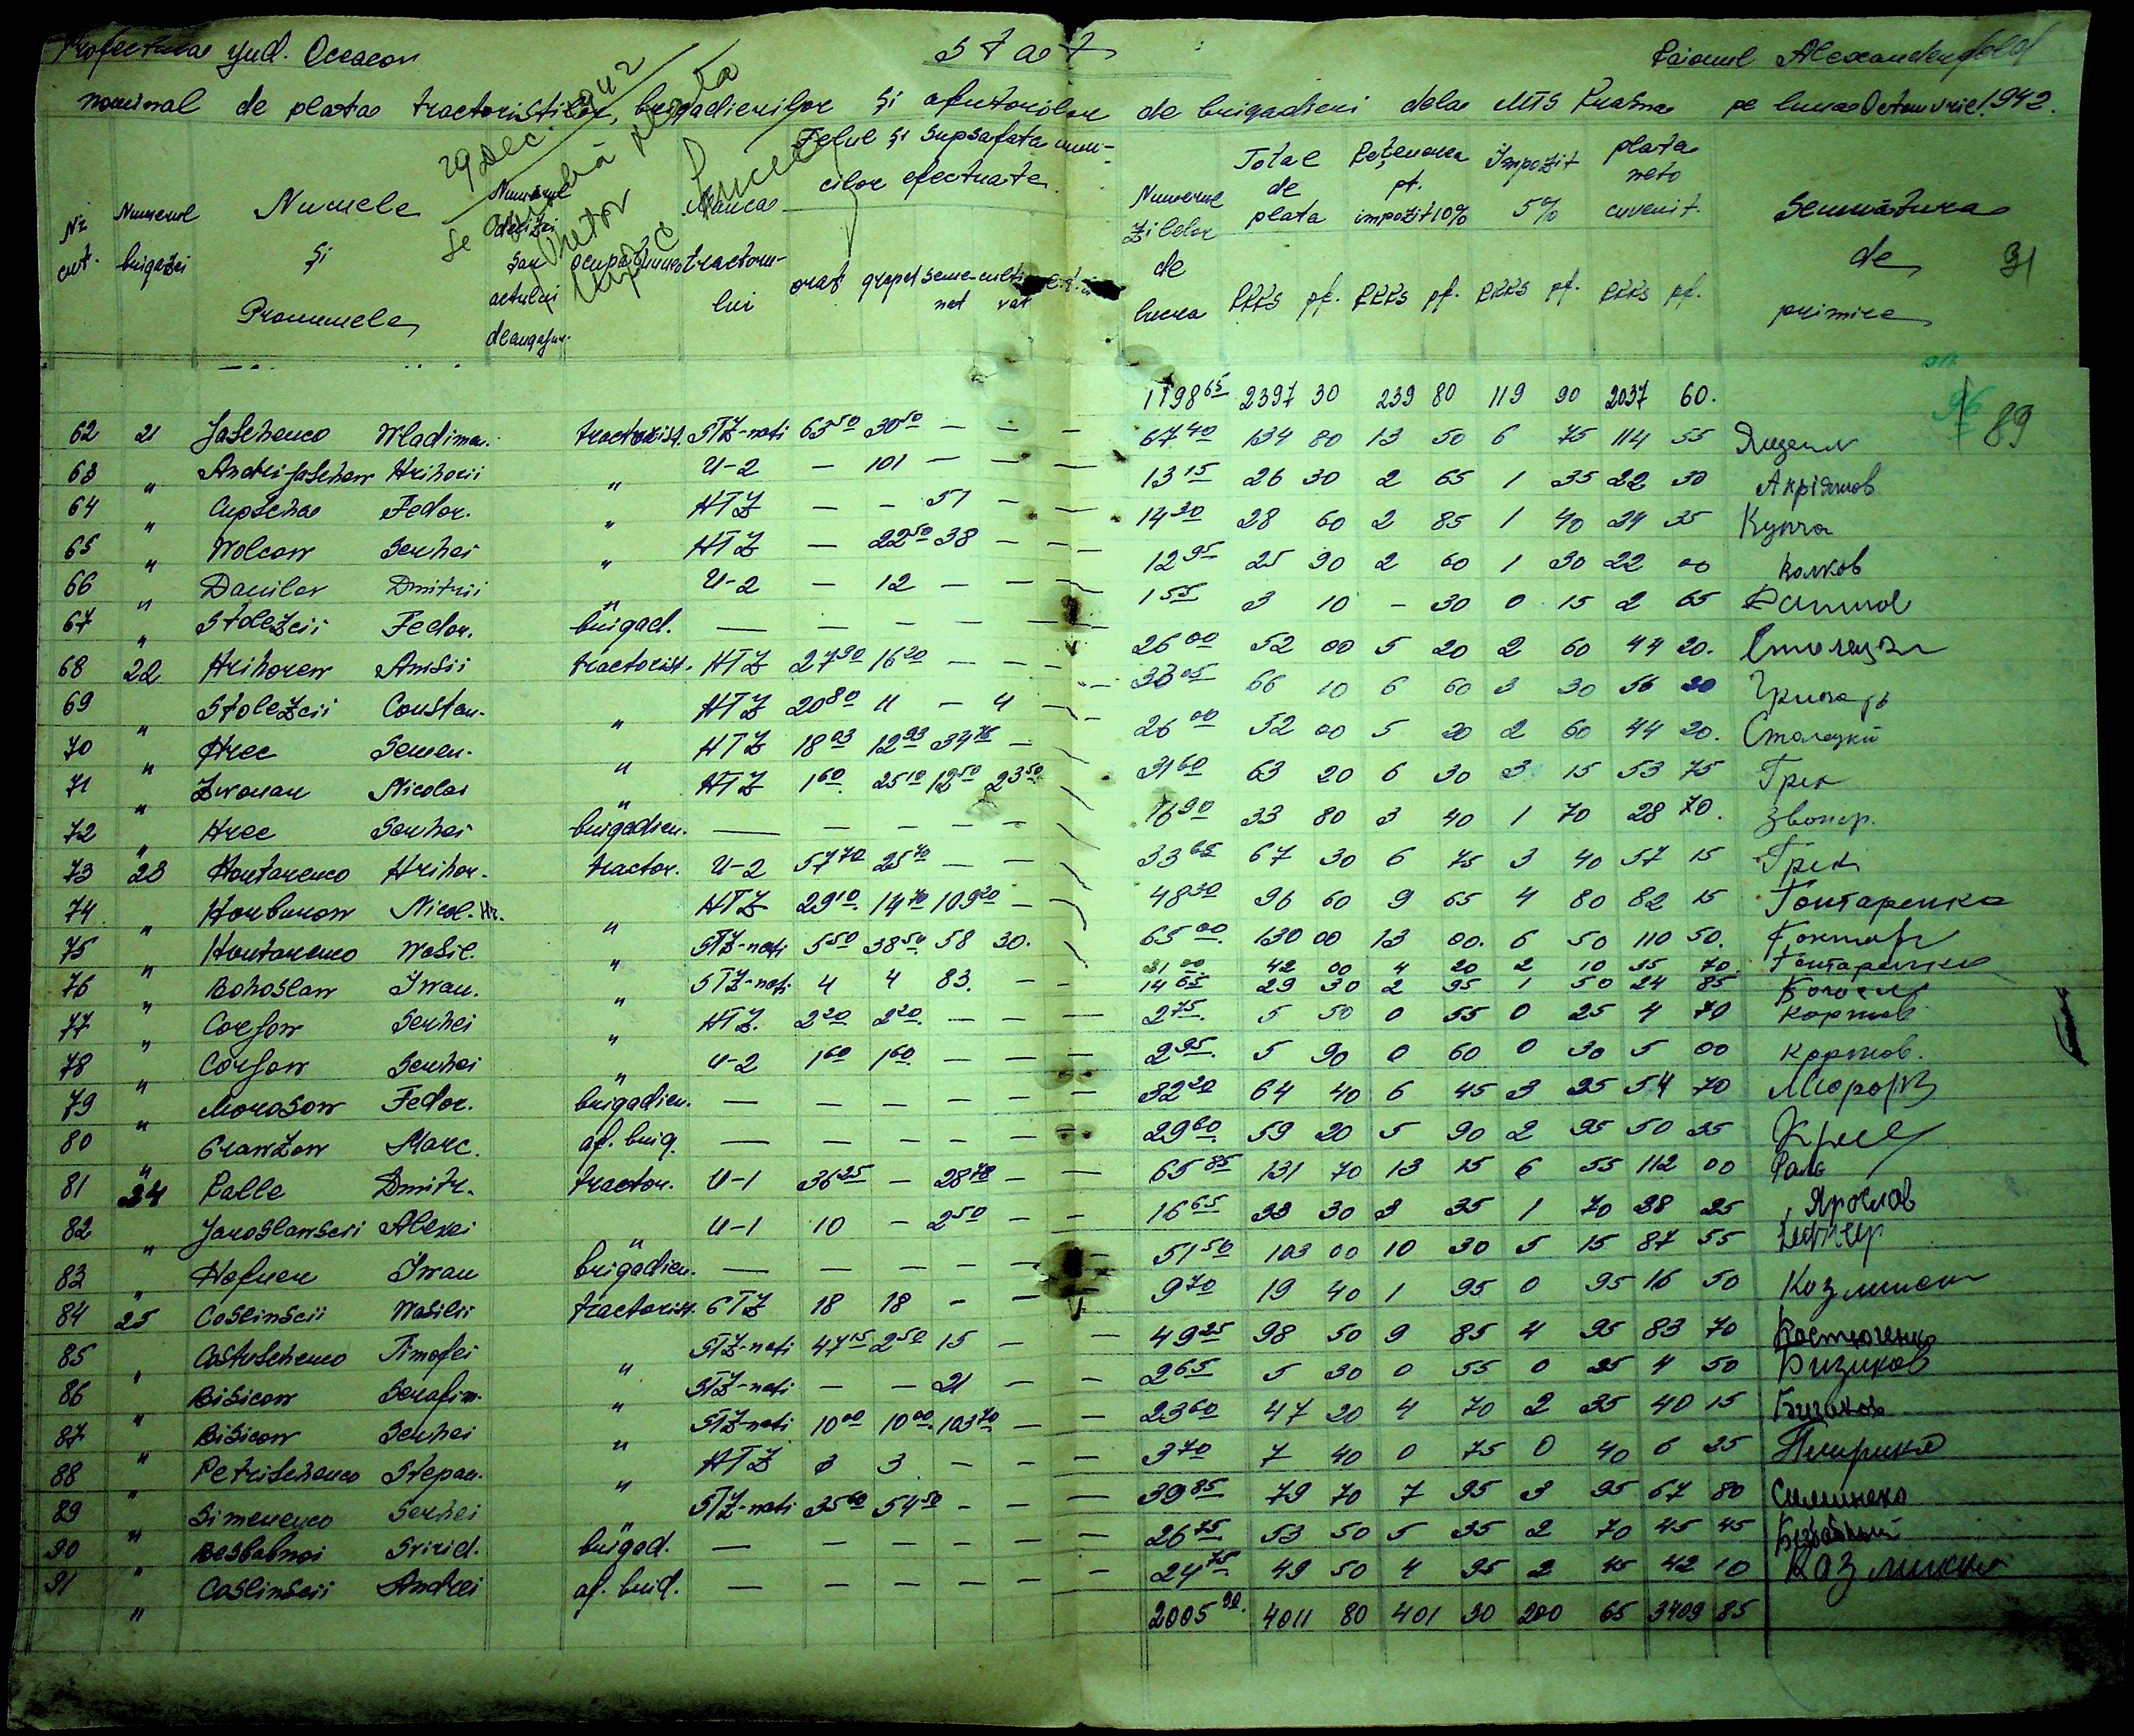 Prefectura Jud. Oceacov Stat Raionul Alexanderfeld
nominal de plata tractoristilor, brigadierilor și ajutorilor de brigadieri dela MTS Krasna pe luna Octomvrie 1942.
29 Dec. 942
Se aprobă plata
Pretor
Nr. crt.
Numerul brigăzii
Numele și Pronumele
Numărul deciziei sau actului de angajar.
ocupațiunea
Marca tractoru-lui
Felul și supsafata mun-cilor efectuate
orat grapat seme-nat culti-vat
Numerul zilelor de lucru
Total de plata RKKS pf.
Reținerea pt. impozit 10% RKKS pf.
Impozit 5% RKKS pf.
plata neto cuvenit. RKKS pf.
Semnătura de primire
31
96 89
1198 65 2397 30 239 80 119 90 2037 60.
62 21 Jaschenco Wladimir. tractorist. STZ-nati 63 50 30 50 — — — 67 40 134 80 13 50 6 75 114 55 Ященк
63 " Andrijaschew Hrihorii " U-2 — 101 — — — 13 15 26 30 2 65 1 35 22 30
64 " Cupscha Fedor. " HTZ — — 51 — — 14 30 28 60 2 85 1 40 24 35 Купча
65 " Wolcow Serhei " HTZ — 22 50 38 — — 12 95 25 90 2 60 1 30 22 00 Волков
66 " Danilov Dmitrii " U-2 — 12 — — — 1 55 3 10 - 30 0 15 2 65 Данилов
67 " Stolezcii Fedor. brigad. — — — — — — 26 00 52 00 5 20 2 60 44 20.
68 22 Hrihorew Amsii tractorist. HTZ 27 90 16 20 — — — 33 05 66 10 6 60 3 30 56 20
69 " Stolezcii Constan. " HTZ 20 80 11 — 4 — 26 00 52 00 5 20 2 60 44 20. Столецкий
70 " Hrec Semen. " HTZ 18 03 12 93 34 75 — 31 60 63 20 6 30 3 15 53 75 Грек
71 " Zwonar Nicolai " HTZ 1 60 25 10 12 50 23 50 — 16 90 33 80 3 40 1 70 28 70. Звонар.
72 " Hrec Serhei brigadier. — — — — — — 33 65 67 30 6 75 3 40 57 15 Грек
73 23 Hontarenco Hrihor. tractor. U-2 57 70 25 70 — — — 48 30 96 60 9 65 4 80 82 15 Гонтаренко
74 " Horbunow Nicol. Hr. " HTZ 29 10 14 70 109 20 — — 65 00 130 00 13 00. 6 50 110 50.
75 " Hontarenco Wasil. " STZ-nati 5 50 38 50 58 30. — 21 00 42 00 4 20 2 10 35 70. Гонтаренко
76 " Bohoslaw Iwan. " STZ-nati 4 4 83. — — 14 65 29 30 2 95 1 50 24 85
77 " Corjow Serhei " HTZ. 2 20 2 20 — — — 2 75 5 50 0 55 0 25 4 70 Коржов
78 " Corjow Serhei " U-2 1 60 1 60 — — — 2 95 5 90 0 60 0 30 5 00 Коржов.
79 " Morosow Fedor. brigadier. — — — — — — 32 20 64 40 6 45 3 25 54 70 Мороз
80 " Crawzow Marc. aj. brig. — — — — — — 29 60 59 20 5 90 2 95 50 35
81 24 Ralle Dmitr. tractor. U-1 36 25 — 28 70 — — 65 85 131 70 13 15 6 55 112 00
82 " Jaroslawscii Alexei " U-1 10 — 2 50 — — 16 65 33 30 3 35 1 70 28 25 Ярослав
83 " Hefner Iwan brigadier. — — — — — — 51 50 103 00 10 30 5 15 87 55
84 25 Coslinscii Wasilii tractorist. STZ 18 18 — — — 9 70 19 40 1 95 0 95 16 50
85 " Costuschenco Timofei " STZ-nati 47 15 2 50 15 — — 49 25 98 50 9 85 4 95 83 70 Костюченко
86 " Bisicow Serafim. " STZ-nati — — 21 — — 2 65 5 30 0 55 0 25 4 50 Бизиков
87 " Bisicow Serhei " STZ-nati 10 00 10 00 103 70 — — 23 60 47 20 4 70 2 35 40 15 Бизиков
88 " Petrischenco Stepan. " HTZ 3 3 — — — 3 70 7 40 0 75 0 40 6 25
89 " Simenenco Serhei " STZ-nati 35 60 54 50 — — — 39 85 79 70 7 95 3 95 67 80
90 " Besbabnoi Svirid. brigad. — — — — — — 26 75 53 50 5 35 2 70 45 45
91 " Coslinscii Andrei aj. brid. — — — — — — 24 75 49 50 4 95 2 45 42 10
2005 90. 4011 80 401 30 200 65 3409 85